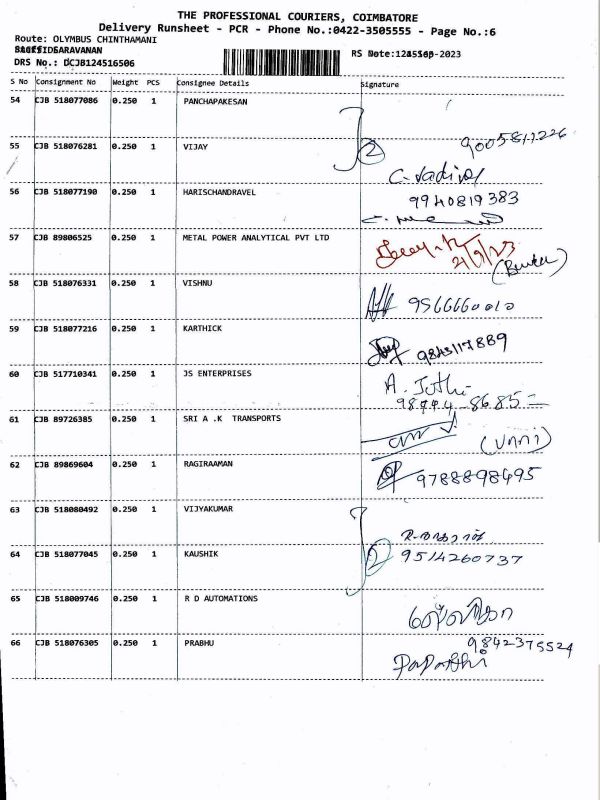 THE PROFESSIONAL COURIERS, COIMBATORE
Delivery Runsheet - PCR - Phone No.:0422-3505555 - Page No.:6
Route: OLYMBUS CHINTHAMANI
SARAVANAN
RS Note: -2023
DRS No.: DCJB124516506
S No Consignment No Weight PCS Consignee Details Signature
54 CJB 518077086 0.250 1 PANCHAPAKESAN
55 CJB 518076281 0.250 1 VIJAY 2 9005811226
56 CJB 518077190 0.250 1 HARISCHANDRAVEL 9940819383
57 CJB 89806525 0.250 1 METAL POWER ANALYTICAL PVT LTD 21/9/23
58 CJB 518076331 0.250 1 VISHNU 9566660010
59 CJB 518077216 0.250 1 KARTHICK 9843117889
60 CJB 517710341 0.250 1 JS ENTERPRISES A. Jothi
61 CJB 89726385 0.250 1 SRI A .K TRANSPORTS
62 CJB 89869604 0.250 1 RAGIRAAMAN 9788898495
63 CJB 518080492 0.250 1 VIJYAKUMAR
64 CJB 518077045 0.250 1 KAUSHIK 2 9514260737
65 CJB 518009746 0.250 1 R D AUTOMATIONS
66 CJB 518076305 0.250 1 PRABHU 9842375524